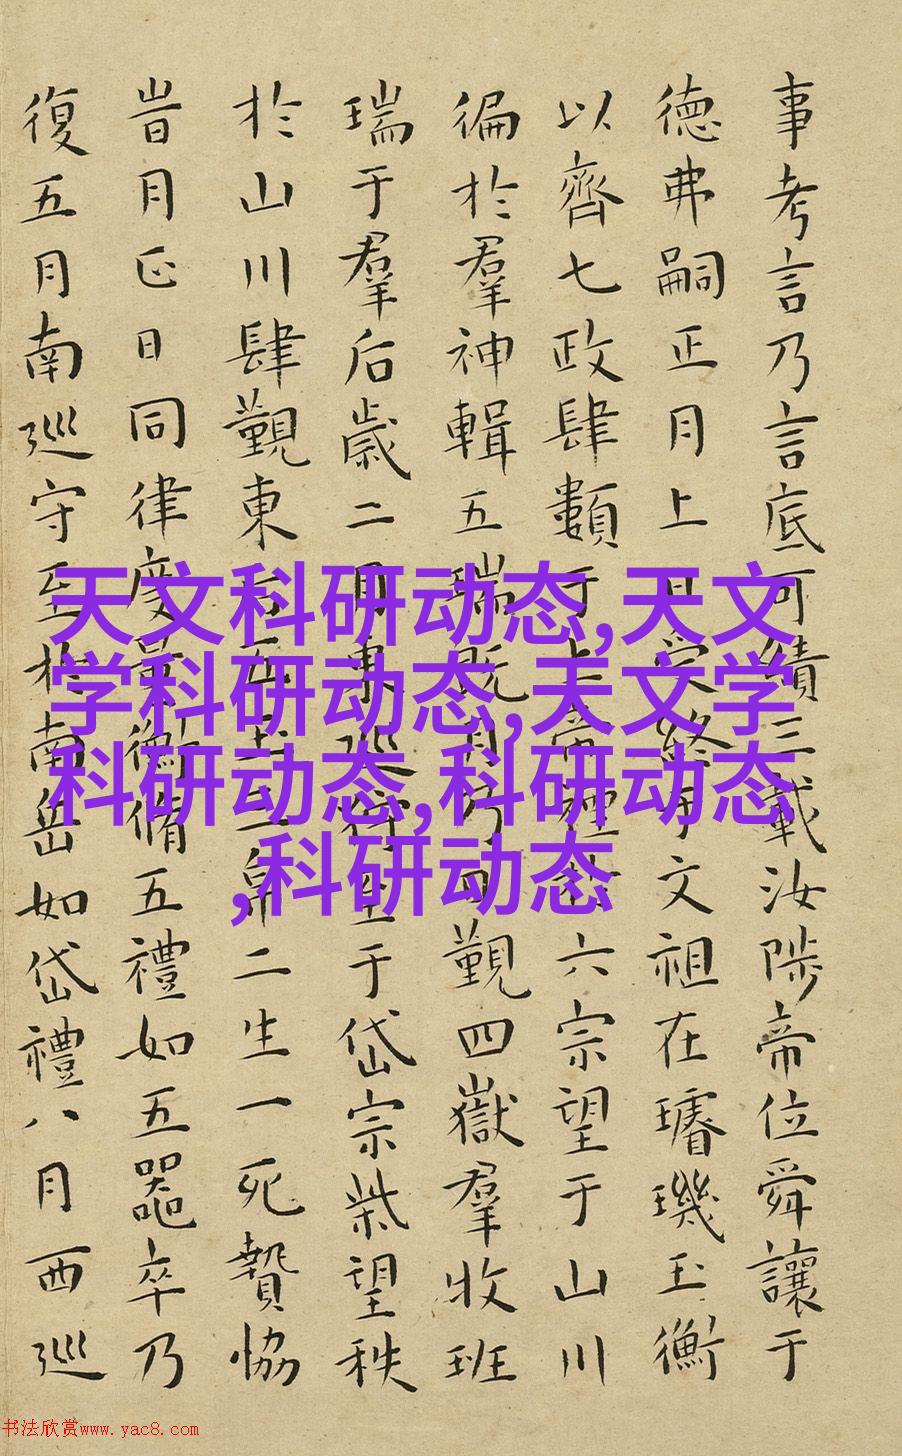 事考言乃言底可績三載汝陟帝位舜讓于
德弗嗣正月上日受終于文祖在璿璣玉衡
以齊七政肆類于上帝禋於六宗望于山川
徧於羣神輯五瑞既月乃日覲四嶽羣牧班
瑞于羣后歲二月東巡狩至于岱宗柴望秩
於山川肆覲東后五玉三帛二生一死贄協
旹月正日同律度量衡脩五禮如五器卒乃
復五月南巡守至於南岳如岱禮八月西巡
天文科研动态,天文
学科研动态,天文学
科研动态,科研动态
,科研动态
书法欣赏www.yac8.com